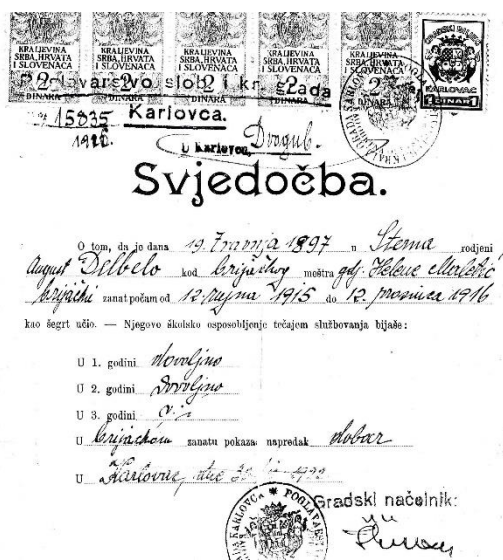 KRALJEVINA SRBA, HRVATA I SLOVENACA
KRALJEVINA SRBA, HRVATA I SLOVENACA
KRALJEVINA SRBA, HRVATA I SLOVENACA
KRALJEVINA SRBA, HRVATA I SLOVENACA
KRALJEVINA SRBA, HRVATA I SLOVENACA
2 2 2 2 2
DINARA DINARA DINARA DINARA DINARA
KARLOVAC
1 DINAR 1
Poglavarstvo slob. i kr. grada
Karlovca.
15835
U Karlovcu,
Svjedočba.
O tom, da je dana 19. Travnja 1897 u Sterna rodjeni
August Delbelo kod brijačkog meštra gdj. Helene
brijački zanat počam od 12. rujna 1915 do 12. prosinca 1916
kao šegrt učio. — Njegovo školsko osposobljenje tečajem službovanja bijaše:
U 1. godini dovoljno
U 2. godini Dovoljno
U 3. godini
U brijačkom zanatu pokaza napredak dobar
U Karlovac, dne
Gradski načelnik: